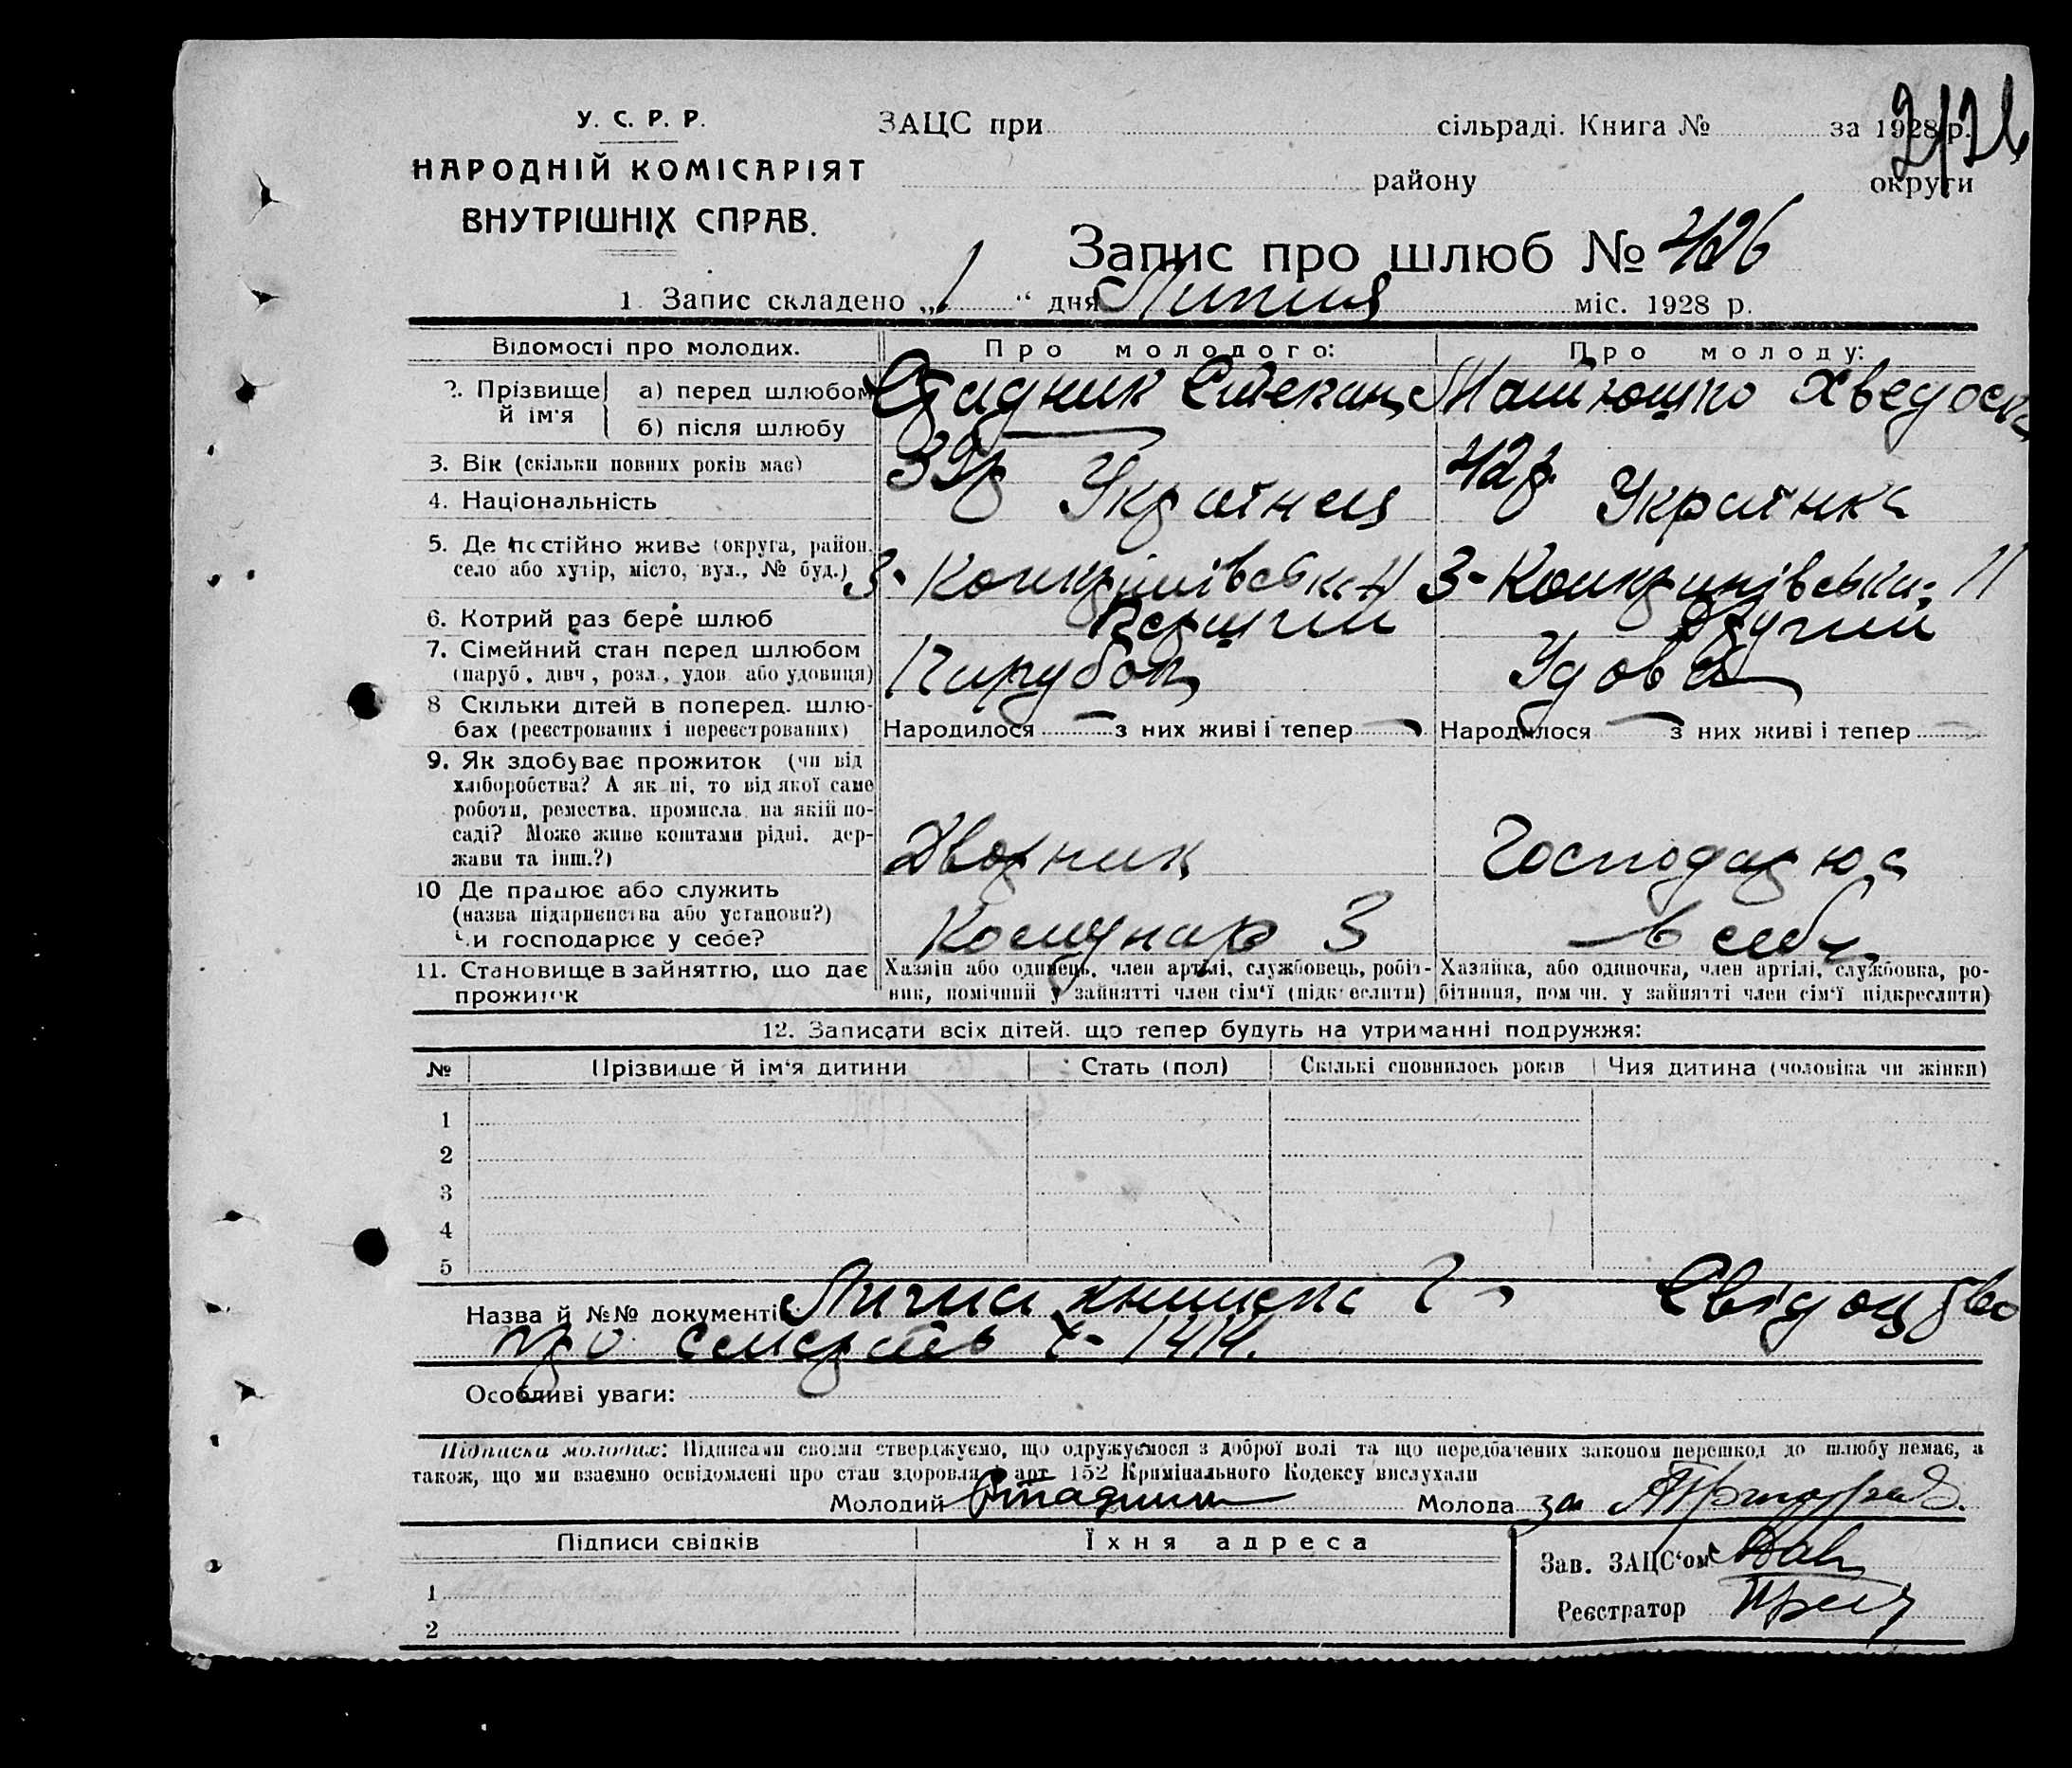 2/26
У. С. Р. Р. ЗАЦС при сільраді. Книга № за 1928 р.
НАРОДНІЙ КОМІСАРІЯТ району округи
ВНУТРІШНІХ СПРАВ.
Запис про шлюб № 426
1 Запис складено „1“ дня Липня міс. 1928 р.
Відомості про молодих. Про молодого: Про молоду:
2. Прізвище й ім'я а) перед шлюбом Стадник Степан Матюшко Хведоська
б) після шлюбу
3. Вік (скільки повних років має) 39р 42р.
4. Національність Українец Українка
5. Де постійно живе (округа, район,
село або хутір, місто, вул., № буд.)
6. Котрий раз бере шлюб Перший Другий
7. Сімейний стан перед шлюбом Парубок Удова
(паруб, дівч, розл., удов. або удовиця)
8 Скільки дітей в поперед. шлю-
бах (реєстрованих і нереєстрованих) Народилося — з них живі і тепер — Народилося — з них живі і тепер
9. Як здобуває прожиток (чи від
хліборобства? А як ні, то від якої саме
роботи, ремества, промисла, на якій по-
саді? Може живе коштами рідні, дер- Дворник Господарює
жави та інш.?)
10 Де працює або служить
(назва підприємства або установи?) Комунар 3 в себе
Чи господарює у себе?
11. Становище в зайняттю, що дає Хазяїн або одинець, член артілі, службовець, робіт- Хазяйка, або одиночка, член артілі, службовка, ро-
прожиток ник, помічний у зайнятті член сім'ї (підкреслити) бітниця, пом чн. у зайнятті член сім'ї підкреслити)
12. Записати всіх дітей, що тепер будуть на утриманні подружжя:
№ Прізвище й ім'я дитини Стать (пол) Скількі сповнилось років Чия дитина (чоловіка чи жінки)
1
2
3
4
5
Назва й №№ документі Лична книжка Свідоцтво
про смерть 1414.
Особливі уваги:
Підписка молодих: Підписами своїми стверджуємо, що одружуємося з доброї волі та що передбачених законом перешкод до шлюбу немає, а
також, що ми взаємно освідомлені про стан здоровля і арт 152 Кримінального Кодексу вислухали
Молодий Стадник Молода за
Підписи свідків Їхня адреса
Зав. ЗАЦС'ом
1
Реєстратор
2